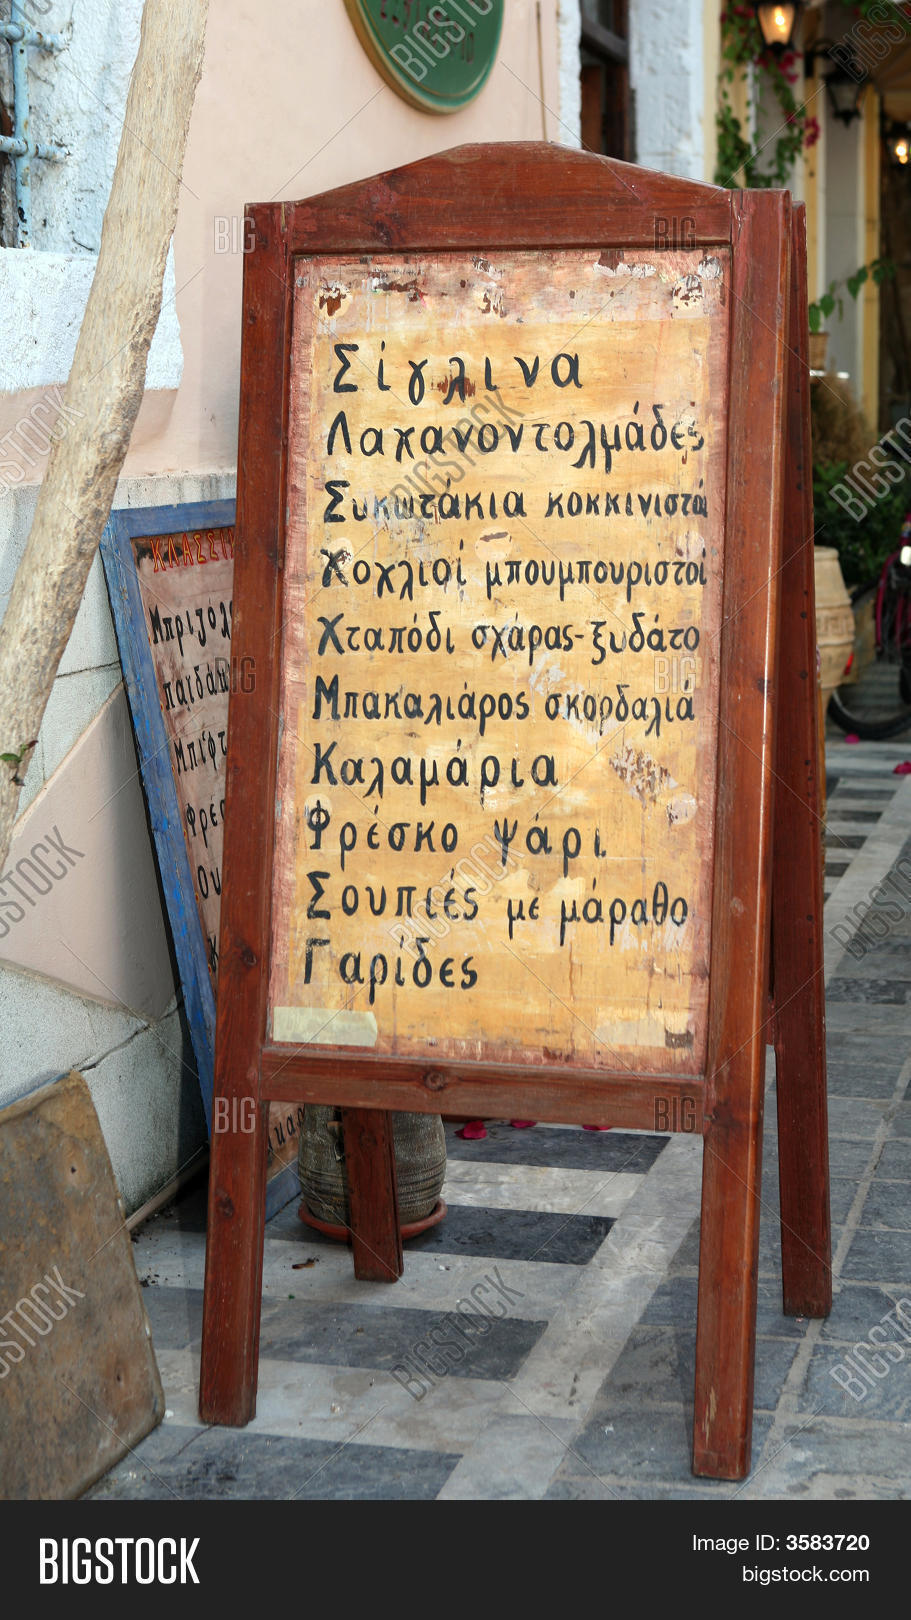 Σίγλινα
Λαχανοντολμάδες
Συκωτάκια κοκκινιστά
Χοχλιοί μπουμπουριστοί
Χταπόδι σχάρας-ξυδάτο
Μπακαλιάρος σκορδαλιά
Καλαμάρια
Φρέσκο ψάρι
Σουπιές με μάραθο
Γαρίδες
BIGSTOCK
Image ID: 3583720
bigstock.com